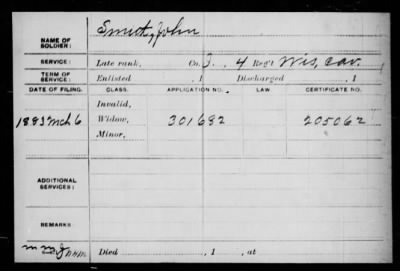 Smith, John
NAME OF SOLDIER:
SERVICE: Late rank, Co. , 4 Reg't Wis. Cav.
TERM OF SERVICE: Enlisted , 1 Discharged , 1
DATE OF FILING. CLASS. APPLICATION NO. LAW CERTIFICATE NO.
Invalid,
1883 Mch 6 Widow, 301682 205062
Minor,
ADDITIONAL SERVICES:
REMARKS:
Died , 1 , at